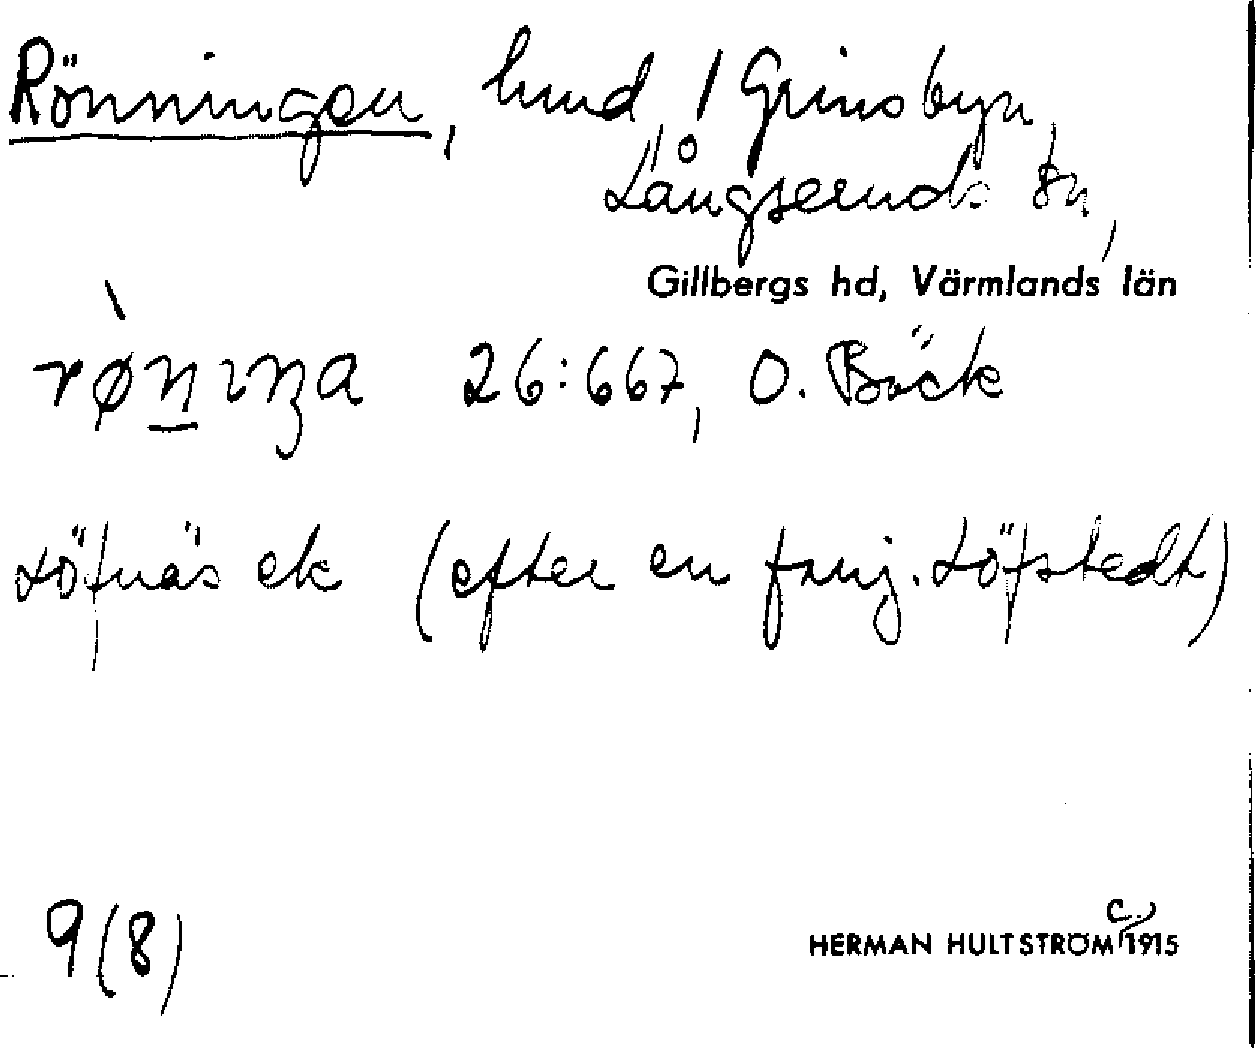 Rönningen, hmd, / Grinsbyn,
Långseruds sn,
Gillbergs hd, Värmlands län
rø̀n̲ıŋa 26:667, O. Bäck
Löfnäs ek (efter en fmj. Löfstedt)
9(8)
HERMAN HULTSTRÖM C. 1915